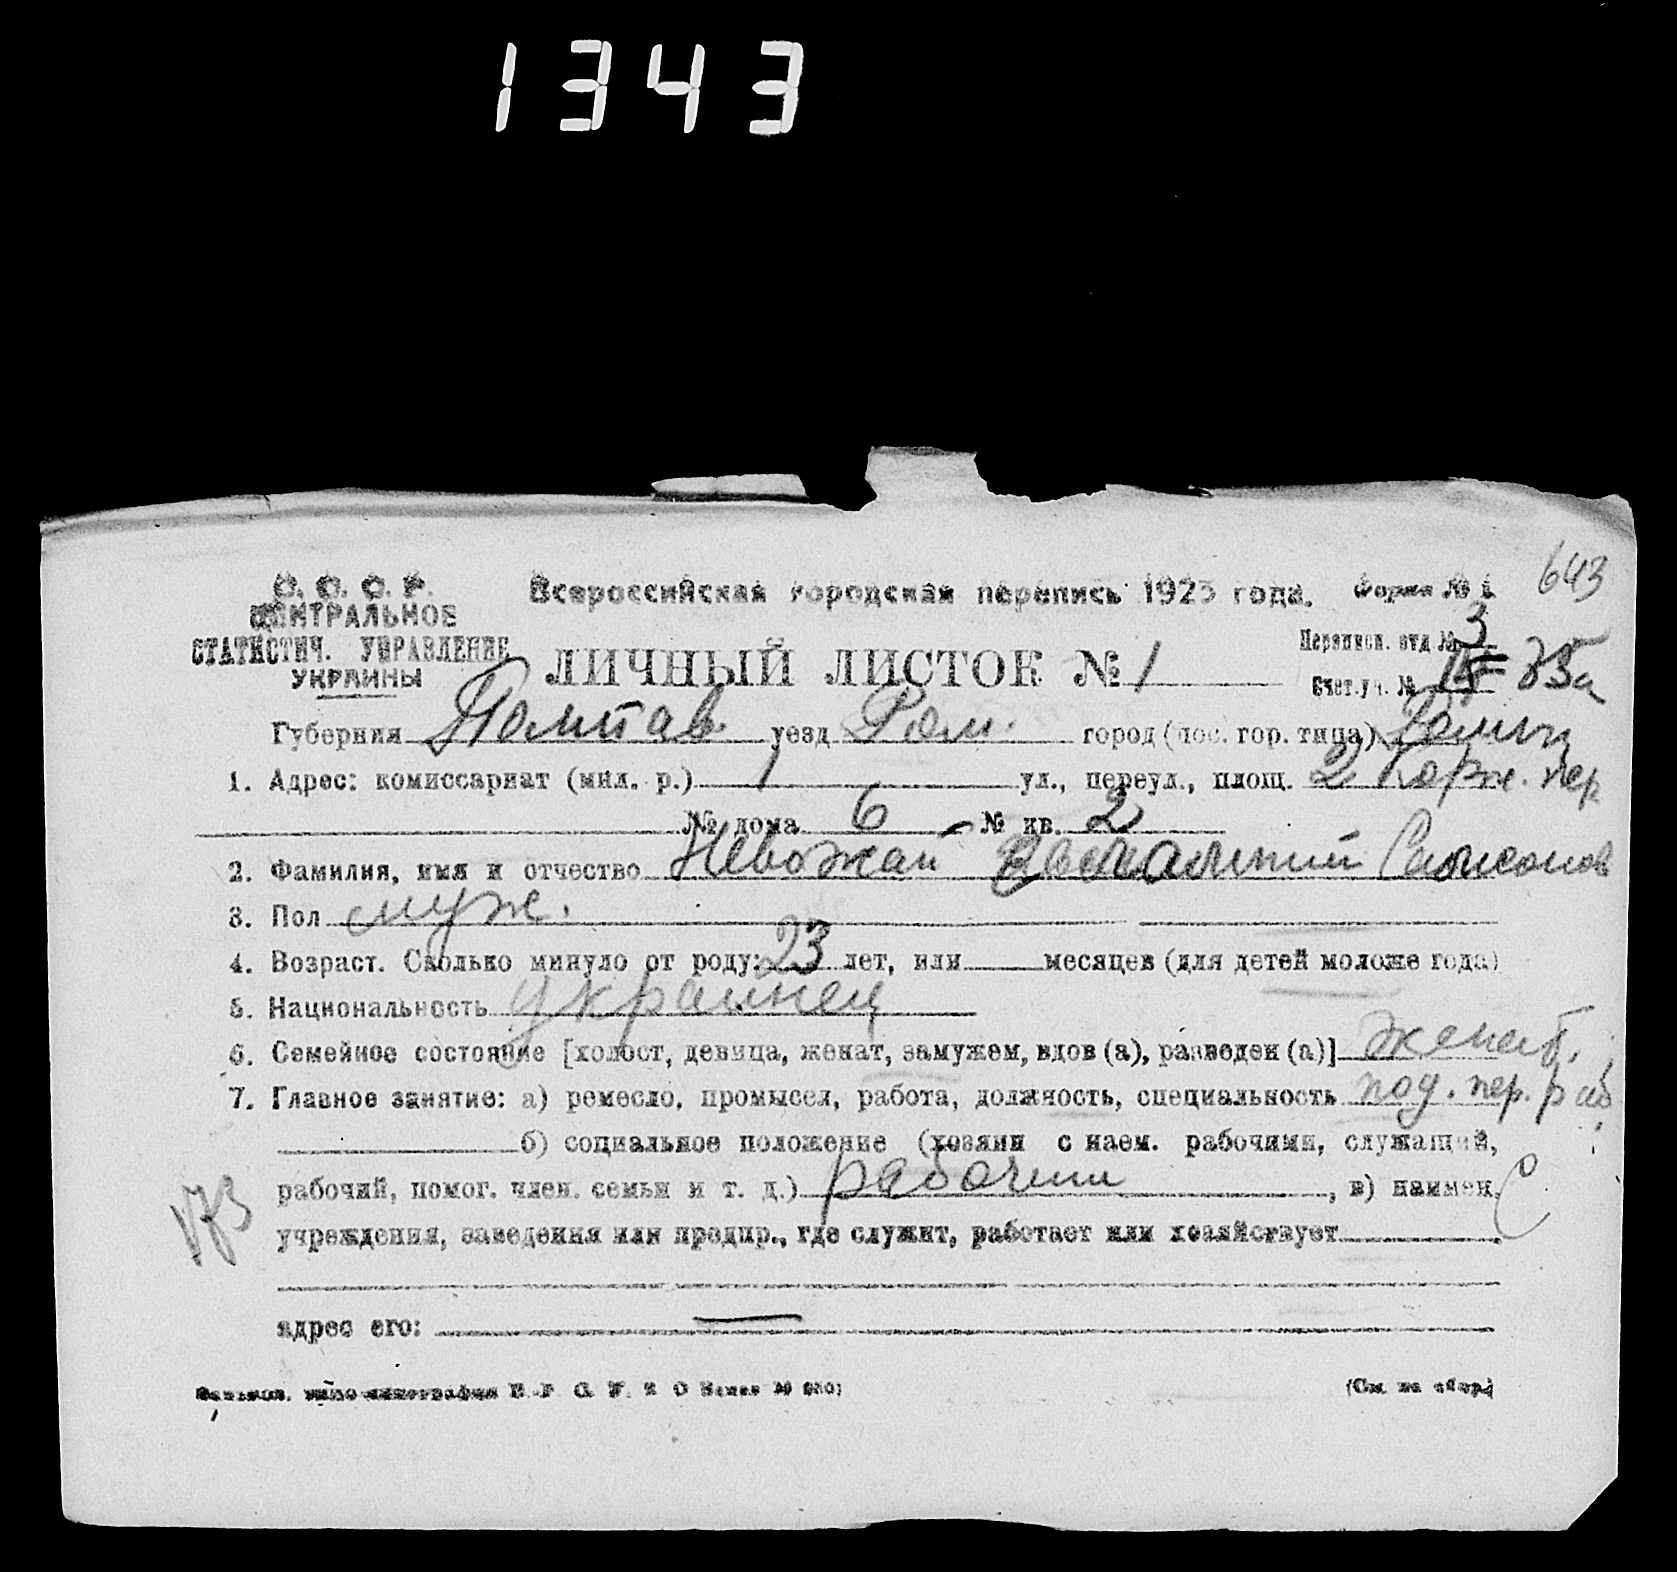 1343
643
С. С. С. Р.
ЦЕНТРАЛЬНОЕ
СТАТИСТИЧ. УПРАВЛЕНИЕ
УКРАИНЫ
Всероссийская городская перепись 1923 года.
Форма № 1
ЛИЧНЫЙ ЛИСТОК № 1
Переписн. отд № 3
Счет. уч. № 35а
Губерния Полтав. уезд Ром. город (пос. гор. типа) Ромны
1. Адрес: комиссариат (мил. р.) 1 ул., переул., площ. 2 пер
№ дома 6 № кв. 2
2. Фамилия, имя и отчество Невожай
3. Пол муж.
4. Возраст. Сколько минуло от роду: 23 лет, или месяцев (для детей моложе года)
5. Национальность украинец
6. Семейное состояние [холост, девица, женат, замужем, вдов (а), разведен (а)] женат.
7. Главное занятие: а) ремесло, промысел, работа, должность, специальность под. пер. раб
б) социальное положение (хозяин с наем. рабочими, служащий,
рабочий, помог. член. семьи и т. д.) рабочий, в) наимен.
173
учреждения, заведения или предпр., где служит, работает или хозяйствует
адрес его:
(См. на обор.)